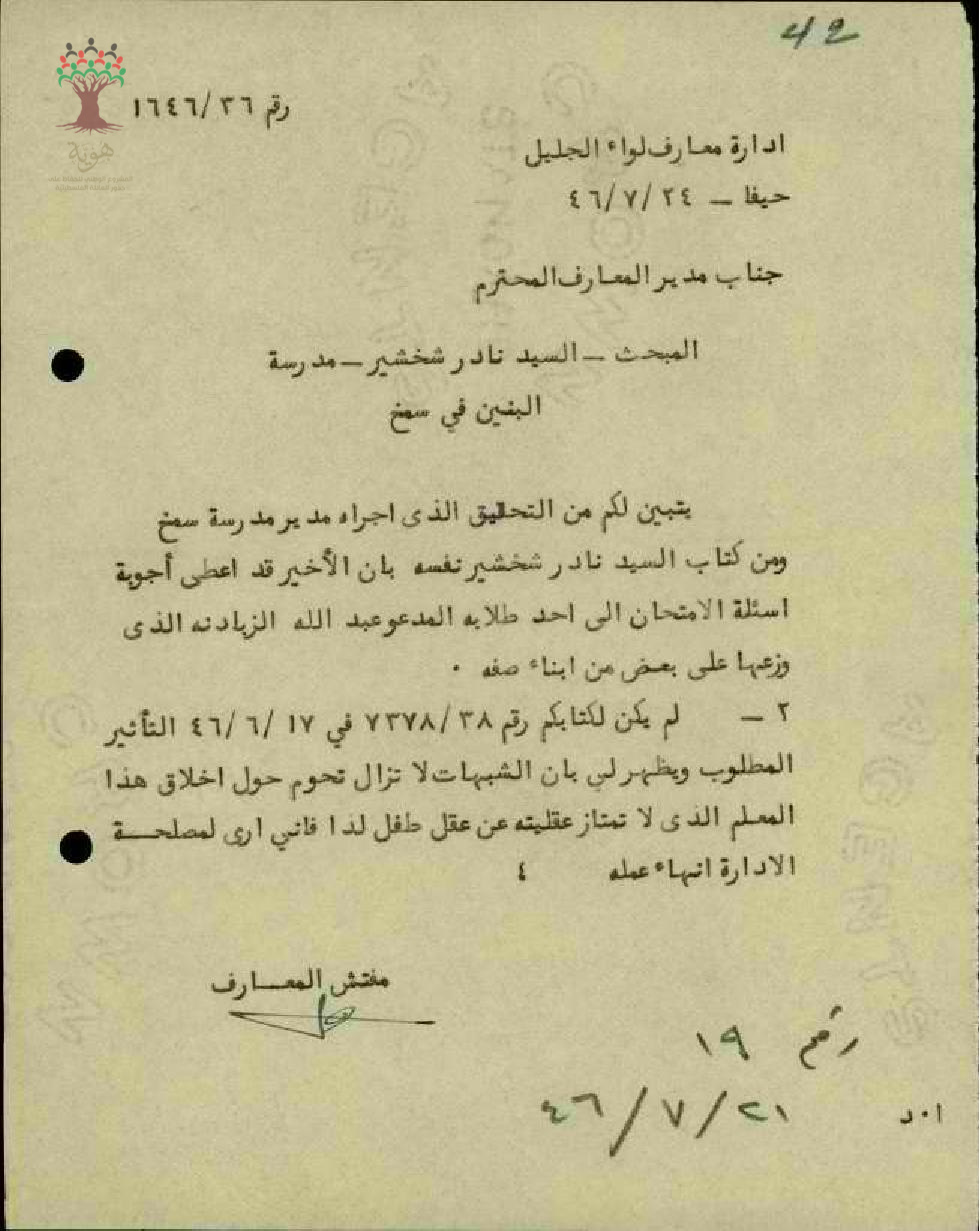 42
هوية
رقم ٣٦/ ١٦٤٦
ادارة معارف لواء الجليل
حيفا ــ ٢٤/ ٧/ ٤٦
جناب مدير المعارف المحترم
المبحث ــ السيد نادر شخشير ــ مدرسة
البنين في سمخ
يتبين لكم من التحقيق الذى اجراه مدير مدرسة سمخ
ومن كتاب السيد نادر شخشير نفسه بان الأخير قد اعطى أجوبة
اسئلة الامتحان الى احد طلابه المدعو عبد الله الزيادنه الذى
وزعها على بعض من ابناء صفه ٠
٢ ــ لم يكن لكتابكم رقم ٣٨/ ٧٣٧٨ في ١٧/ ٦/ ٤٦ التأثير
المطلوب ويظهر لي بان الشبهات لا تزال تحوم حول اخلاق هذا
المعلم الذى لا تمتاز عقليته عن عقل طفل لذا فاني ارى لمصلحـــة
الادارة انهاء عمله ٤
مفتش المعـــارف
رقم ١٩
٢١/ ٧/ ٤٦
ا٠د